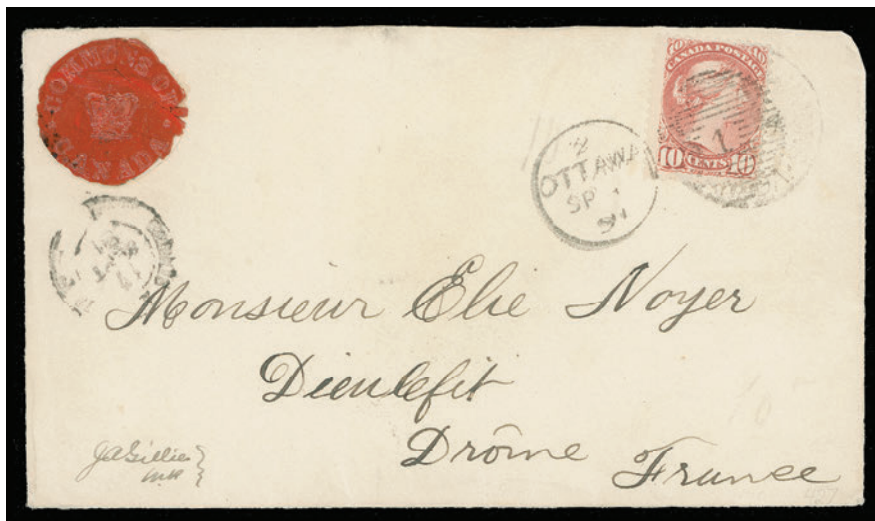 COMMONS OF CANADA
CANADA POSTAGE
10 CENTS 10
1
2
OTTAWA
SP 1
91
Monsieur Elie Noyer
Dieulefit
Drôme
France
JAGillies
427